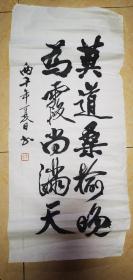 莫道桑榆晚
为霞尚满天
丙子年夏日书